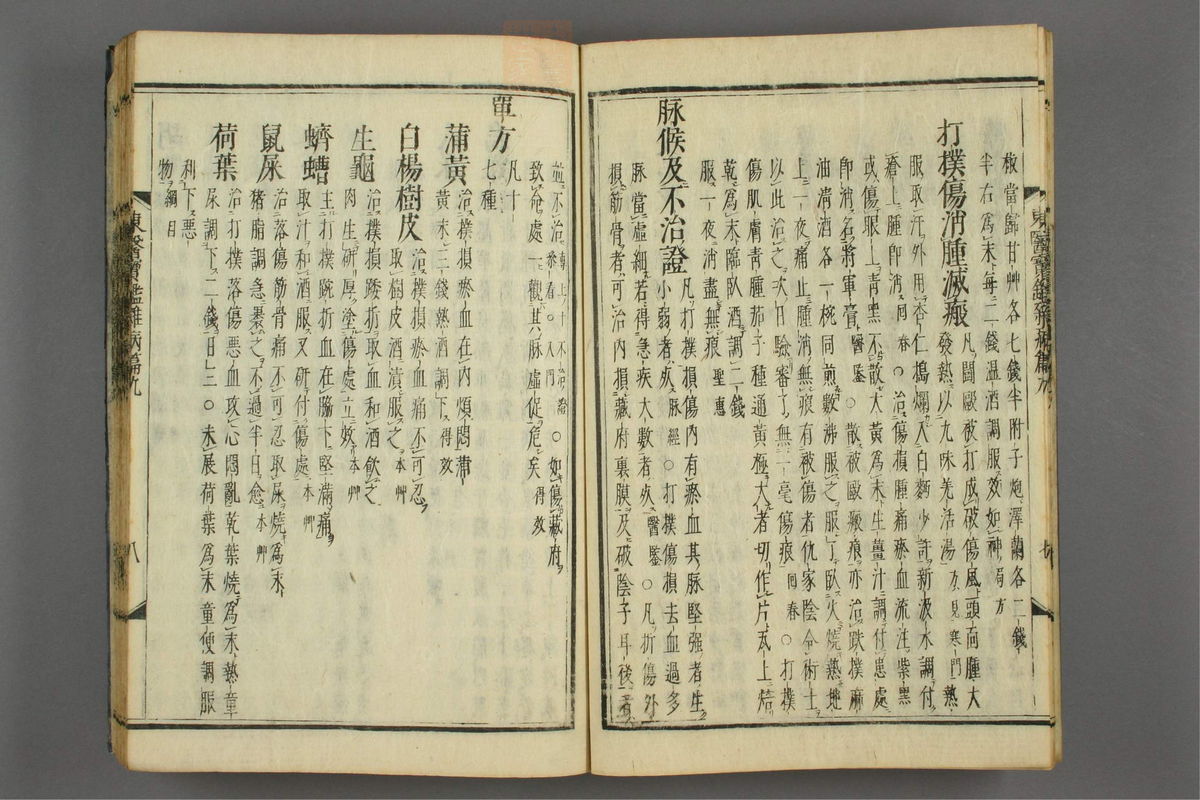 椒當歸甘艸各七錢半附子炮澤蘭各二錢
半右爲末每二錢溫酒調服效如神局方
打撲傷消腫滅瘢凡鬪毆被打成破傷風頭面腫大
發熱以九味羌活湯方見寒門熱
服取汗外用杏仁搗爛入白麪少許新汲水調付
瘡上腫卽消回春○治傷損腫痛瘀血流注紫黑
或傷眼上靑黑不散大黃爲末生薑汁調付患處
卽消名將軍膏醫鑒○散被毆瘢痕亦治跌撲麻
油淸酒各一椀同煎數沸服之服了臥火燒熱地
上一夜痛止腫消無痕有被傷者仇家陰令術士
以此治之次日驗審了無一毫傷痕回春○打撲
傷肌膚靑腫茄子種通黃極大者切作片瓦上焙
乾爲末臨臥酒調二錢
服一夜消盡無痕聖惠
脉候及不治證凡打撲損傷內有瘀血其脉堅强者生
小弱者死脉經○打撲傷損去血過多
脉當虛細若得急疾大數者死醫鑒○凡折傷外
損筋骨者可治內損藏府裏膜及破陰子耳後者
並不治與上十不治證參看○入門○如傷藏府
致命處一觀其脉虛促危矣得效
單方凡十
七種
蒲黃治撲損瘀血在內煩悶蒲
黃末三錢熱酒調下得效
白楊樹皮治撲損瘀血痛不可忍
取樹皮酒漬服之本艸
生龜治撲損踒折取血和酒飮之
肉生硏厚塗傷處立效本艸
蠐螬主打撲踠折血在脇下堅滿痛
取汁和酒服又硏付傷處本艸
鼠屎治落傷筋骨痛不可忍取屎燒爲末
猪脂調急裹之不過半日愈本艸
荷葉治打撲落傷惡血攻心悶亂乾葉燒爲末熱童
尿調下二錢日三○未展荷葉爲末童便調服
利下惡
物綱目
東醫寶鑑雜病篇九
八